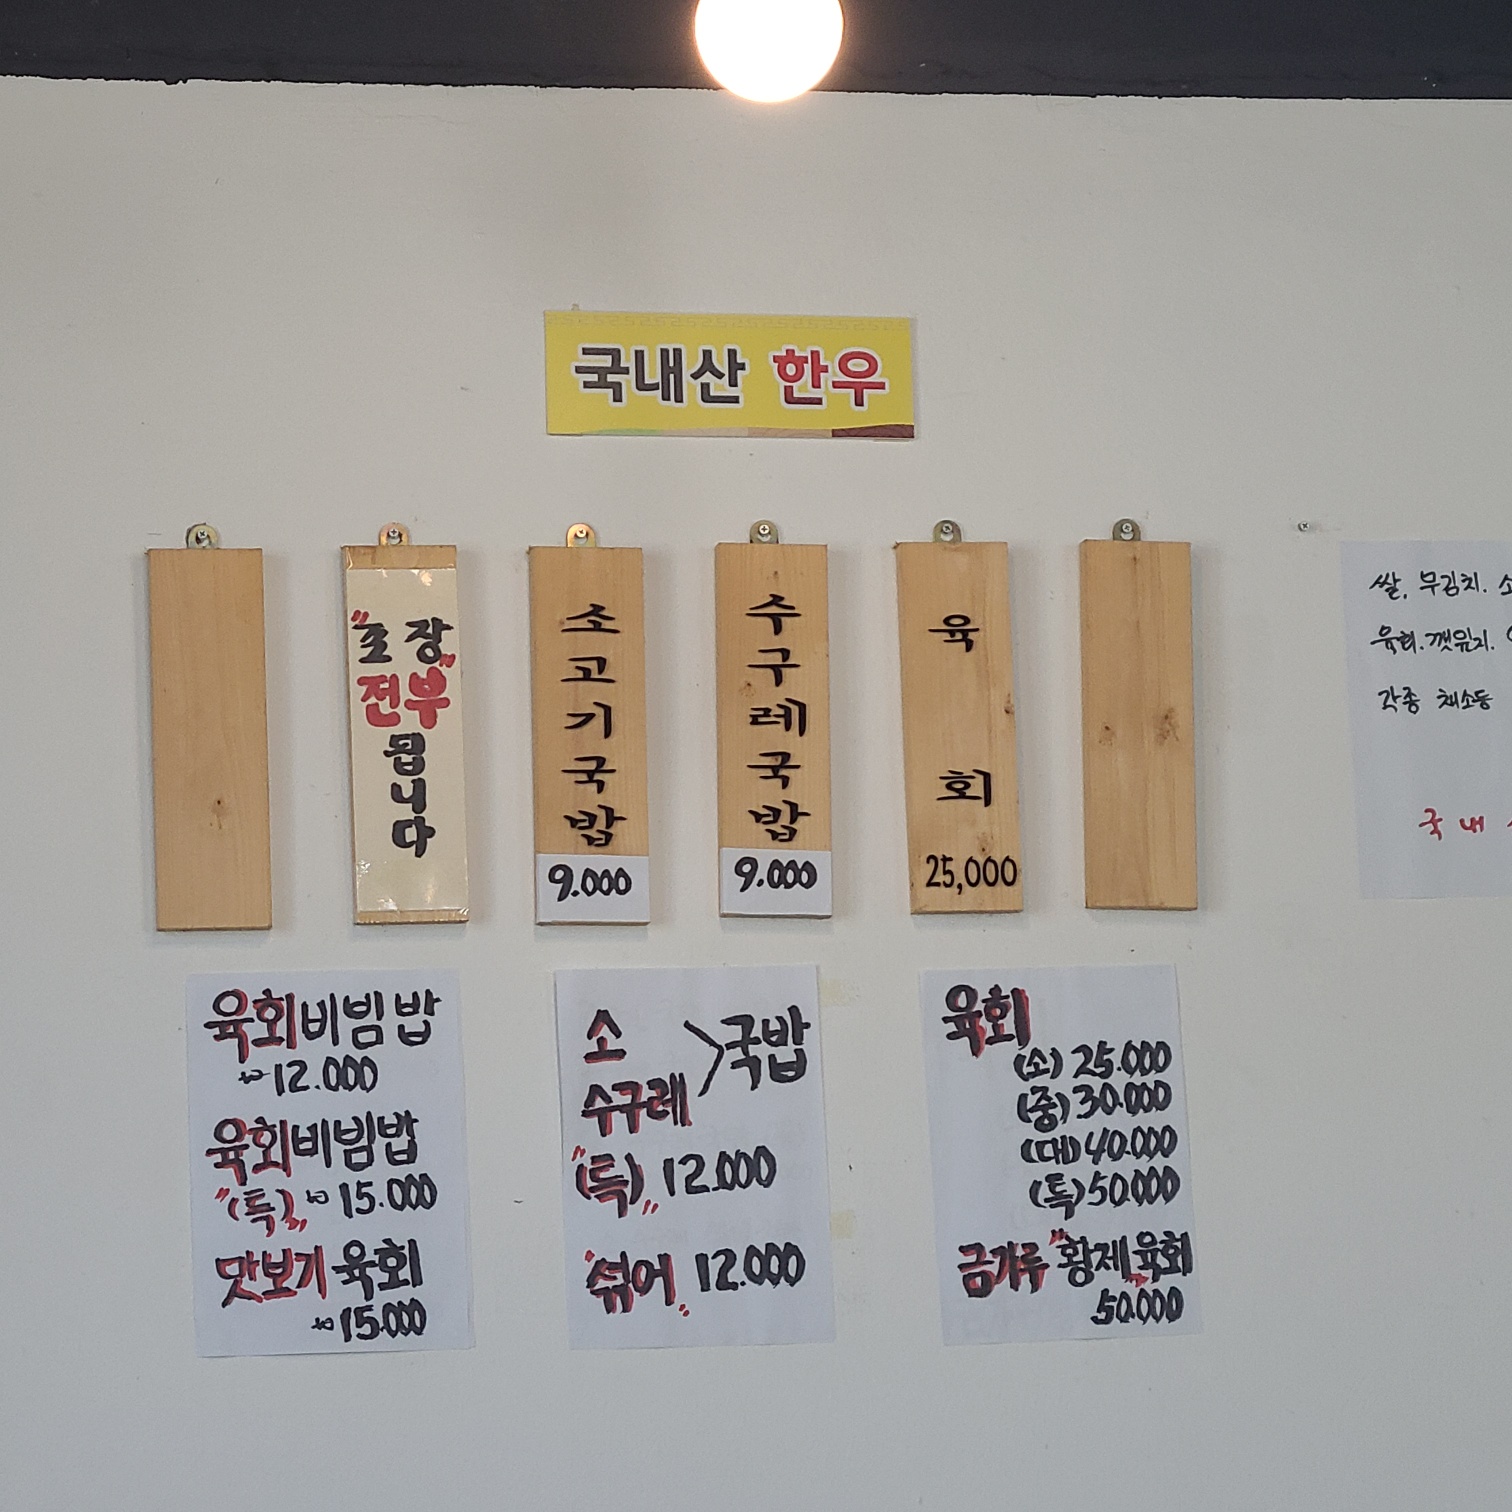 국내산 한우
"포장"
전부
됩니다
소고기국밥
9.000
수구레국밥
9.000
육회
25,000
쌀, 무김치.
육회.깻잎지.
각종 채소등
국내
육회비빔밥
12.000
육회비빔밥
"(특)" 15.000
맛보기 육회
15.000
소
수구레
>국밥
"(특)" 12.000
"섞어" 12.000
육회
(소) 25.000
(중) 30.000
(대) 40.000
(특) 50.000
금가루 "황제"육회
50.000